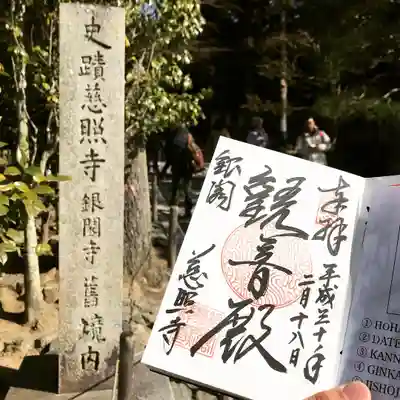 史蹟慈照寺 銀閣寺 舊境内
奉拝
平成三十年
二月十八日
観音殿
銀閣
慈照寺
① HOHA
② DATE
③ KANN
④ GINKA
⑤ JISHOJ